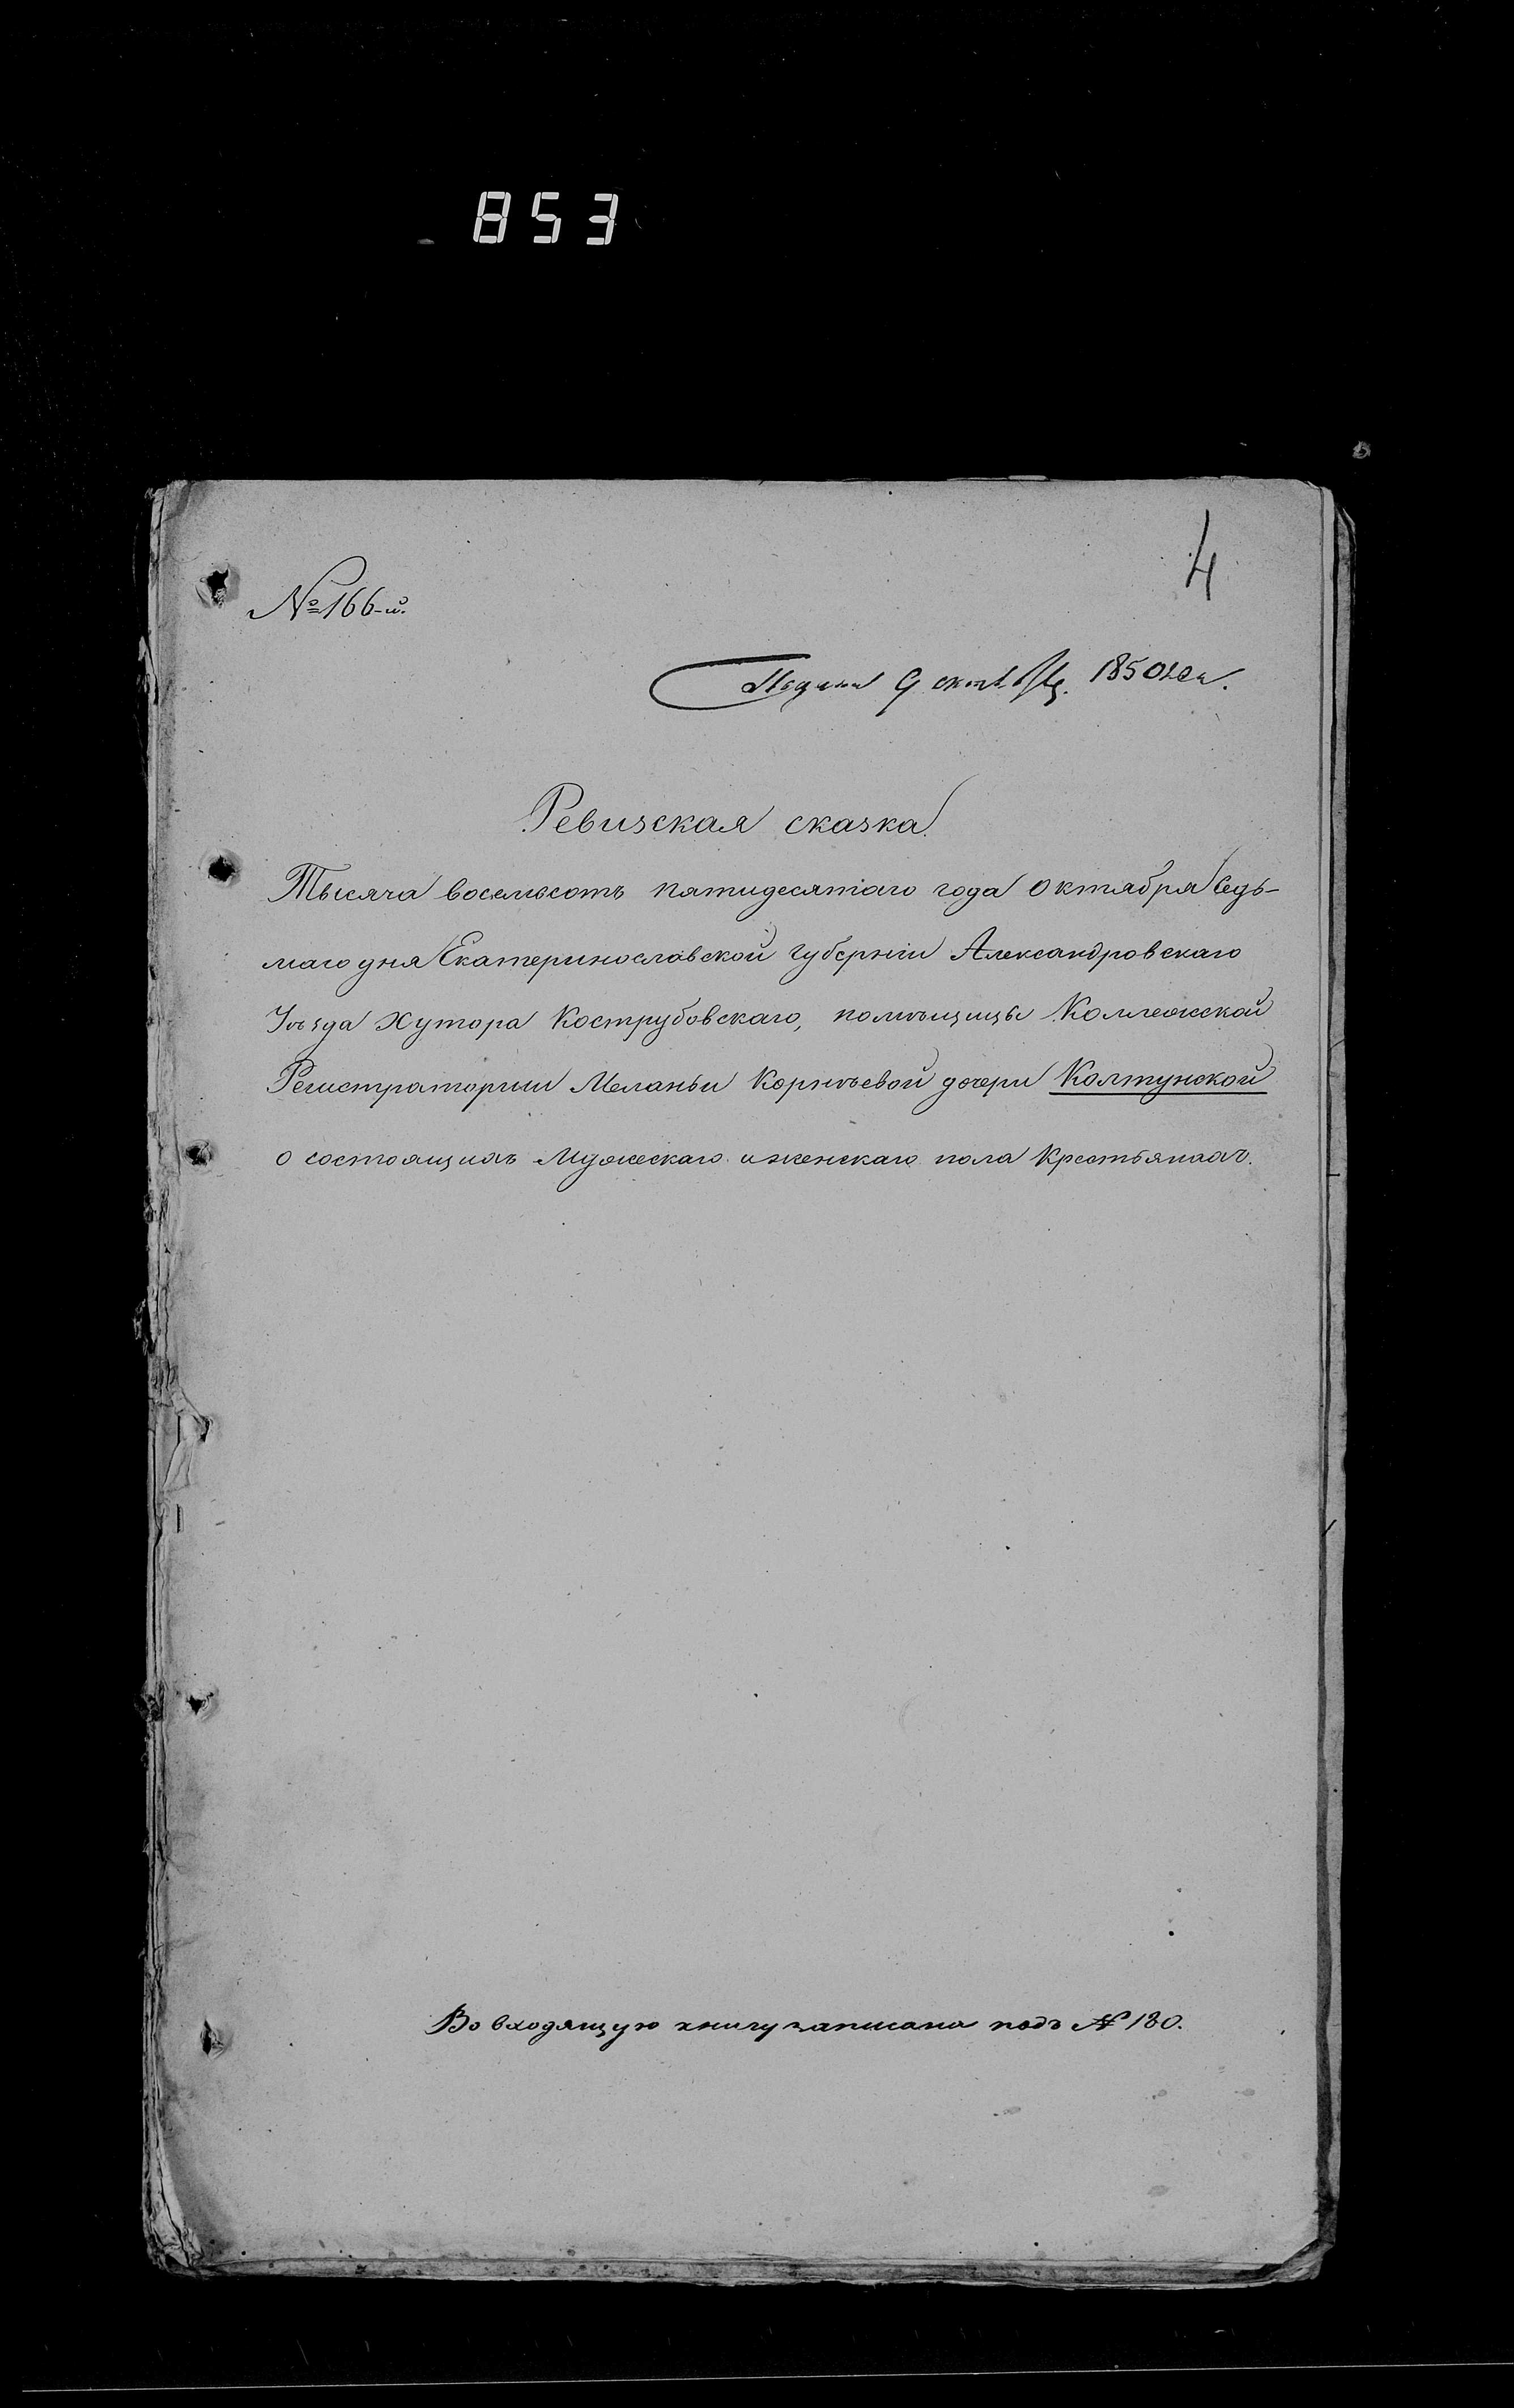 853
4
№ 166-й.
Подана 9 октября 1850 года.
Ревизская сказка.
Тысяча восемьсотъ пятидесятаго года Октября Седь-
маго дня Екатеринославской губерніи Александровскаго
Уѣзда Хутора Кострубовскаго, помѣщицы Коллежской
Регистраторши Меланьи Корнѣевой дочери Колтунской
о состоящихъ Мужескаго и женскаго пола Крестьянахъ.
Во входящую книгу записана подъ № 180.